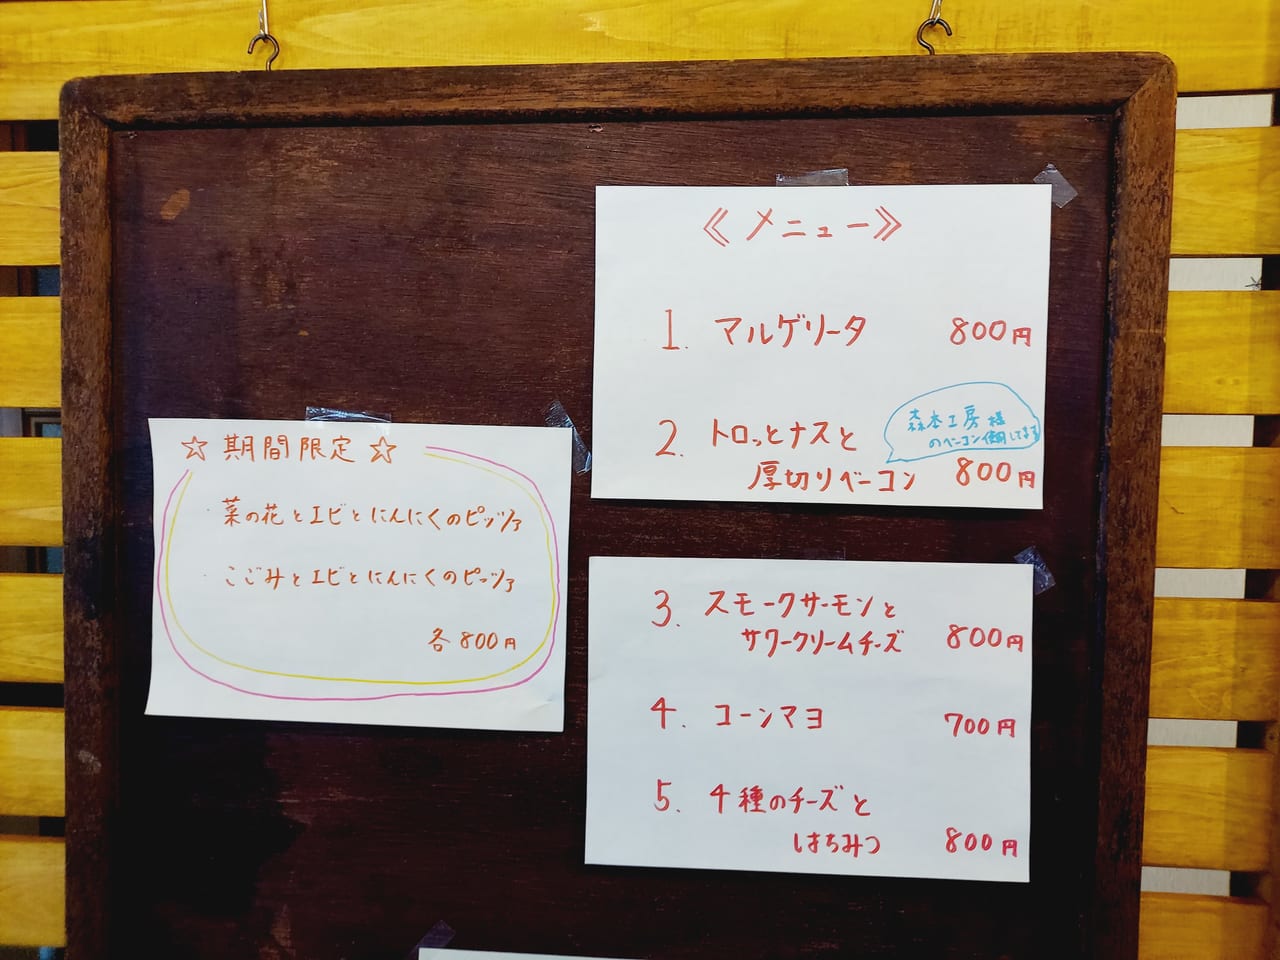 ☆ 期間限定 ☆
・菜の花とエビとにんにくのピッツァ
・こごみとエビとにんにくのピッツァ
各800円
《メニュー》
1. マルゲリータ 800円
2. トロッとナスと
厚切りベーコン 800円
森本工房様
のベーコン使用してます
3. スモークサーモンと
サワークリームチーズ 800円
4. コーンマヨ 700円
5. 4種のチーズと
はちみつ 800円